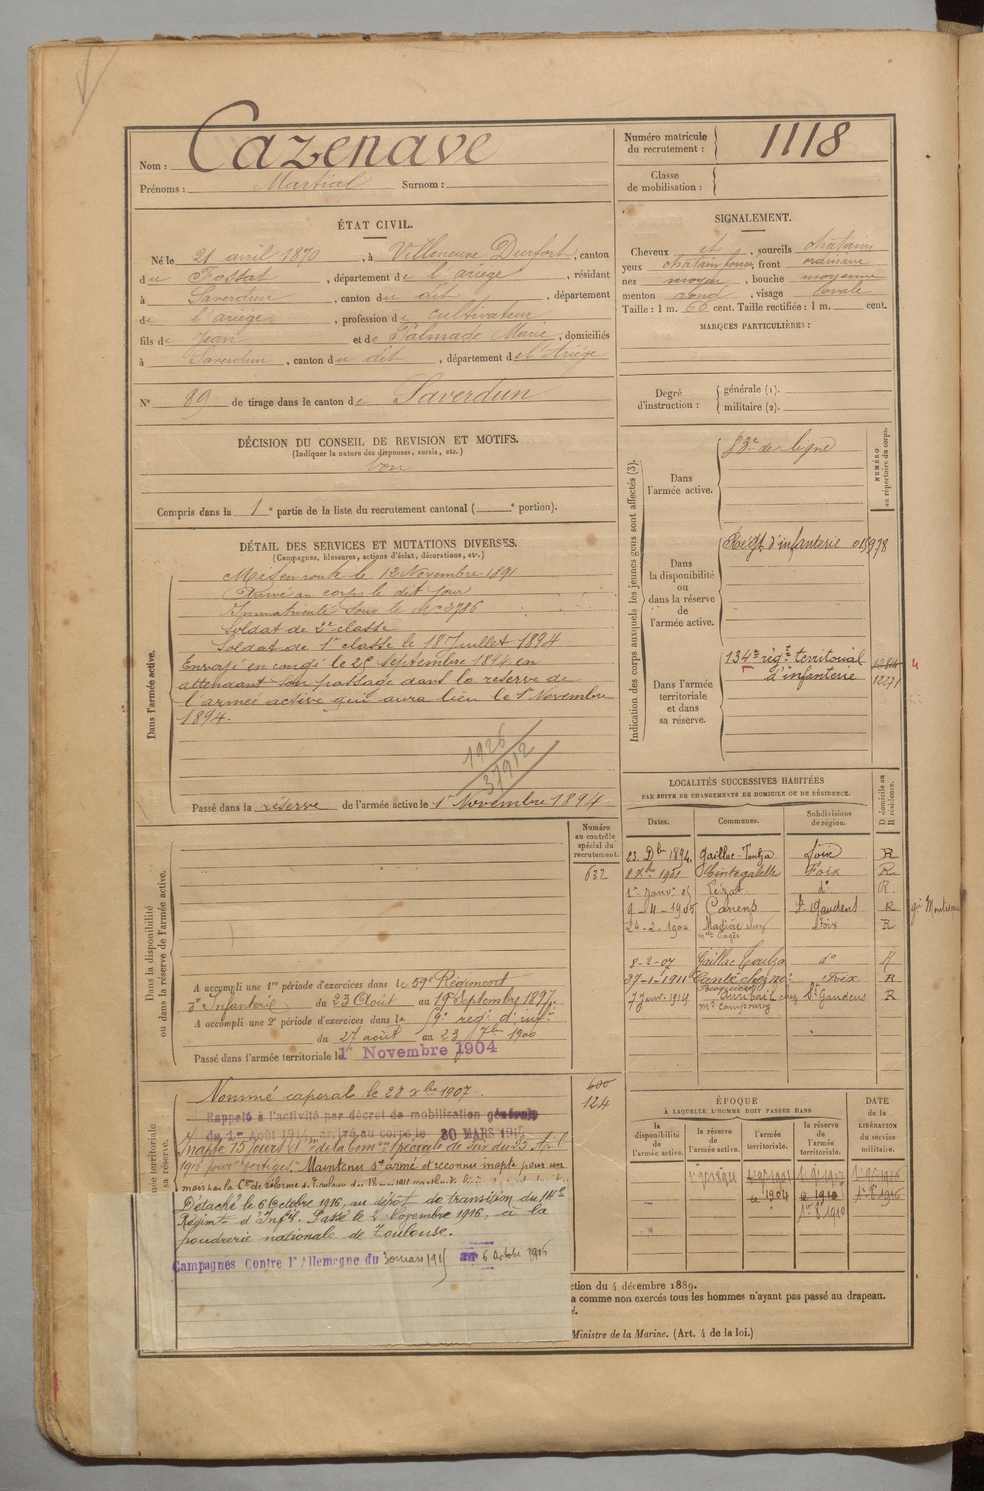 Nom : Cazenave
Prénoms : Martial Surnom :
Numéro matricule du recrutement : 1118
Classe de mobilisation :
ÉTAT CIVIL.
Né le 21 avril 1870, à Villeneuve Durfort, canton
du Fossat, département de l'ariège, résidant
à Saverdun, canton du dit, département
de l'ariège, profession de cultivateur
fils de Jean et de Palmade Marie, domiciliés
à Saverdun, canton du dit, département de l'Ariège
N° 89 de tirage dans le canton de Saverdun
DÉCISION DU CONSEIL DE REVISION ET MOTIFS.
(Indiquer la nature des dispenses, sursis, etc.)
bon
Compris dans la 1e partie de la liste du recrutement cantonal ( e portion).
SIGNALEMENT.
Cheveux et, sourcils chatains
yeux, front ordinaire
nez moyen, bouche moyenne
menton rond, visage ovale
Taille : 1 m. 66 cent. Taille rectifiée : 1 m. cent.
MARQUES PARTICULIÈRES :
Degré d'instruction : générale (1).
militaire (2).
DÉTAIL DES SERVICES ET MUTATIONS DIVERSES.
(Campagnes, blessures, actions d'éclat, décorations, etc.)
Dans l'armée active.
Mis en route le 12 Novembre 1891
Arrivé au corps le dit jour
Immatriculé sous le No 3786
Soldat de 2e classe
Soldat de 1e classe le 18 Juillet 1894
Envoyé en congé le 28 Septembre 1894 en
attendant son passage dans la réserve de
l'armée active qui aura lieu le 1er Novembre
1894.
1926
37912
Passé dans la réserve de l'armée active le 1er Novembre 1894
Indication des corps auxquels les jeunes gens sont affectés (3).
NUMÉRO au répertoire du corps.
Dans l'armée active.
83e de ligne
Dans la disponibilité ou dans la réserve de l'armée active.
Regt d'infanterie 015978
Dans l'armée territoriale et dans sa réserve.
134e régt territorial
d'infanterie
12271
Numéro au contrôle spécial du recrutement.
632
Dans la disponibilité ou dans la réserve de l'armée active.
A accompli une 1re période d'exercices dans le 59e Régiment
d'Infanterie du 23 Août au 19 Septembre 1897.
A accompli une 2e période d'exercices dans le 59e régt d'infie
du 27 août au 23 7bre 1900
Passé dans l'armée territoriale le 1er Novembre 1904
LOCALITÉS SUCCESSIVES HABITÉES
PAR SUITE DE CHANGEMENTS DE DOMICILE OU DE RÉSIDENCE.
Dates. Communes. Subdivisions de région. D domicile ou R résidence.
23 Dbre 1894. Gaillac-Toulza Foix R
8 Xbre 1901 Cintegabelle Foix R
1er Janvr 05 Lézat do R.
9-4-1905 Canens St Gaudens R
24.2.1906 Foix R
8-2-07 Gaillac Toulza do R
27-1-1911 Foix R
7 Janv. 1914 St Gaudens R
Nommé caporal le 28 Xbre 1907.
600
124
Rappelé à l'activité par décret de mobilisation générale
du 1er Août 1914 arrivé au corps le 30 MARS 1915
Inapte 15 jours
Maintenu s. armé et reconnu inapte pour un
Détaché le 6 Octobre 1916, au dépôt de transition du 14e
Régimt d'Infie. Passé le 2 Novembre 1916, à la
poudrerie nationale de Toulouse.
Campagnes Contre l'Allemagne du 30 mars 1915 au 6 Octobre 1916
ÉPOQUE
À LAQUELLE L'HOMME DOIT PASSER DANS
la disponibilité de l'armée active. la réserve de l'armée active. l'armée territoriale. la réserve de l'armée territoriale.
DATE de la LIBÉRATION du service militaire.
1904 1910 1916
ction du 4 décembre 1889.
a comme non exercés tous les hommes n'ayant pas passé au drapeau.
é.
Ministre de la Marine. (Art. 4 de la loi.)